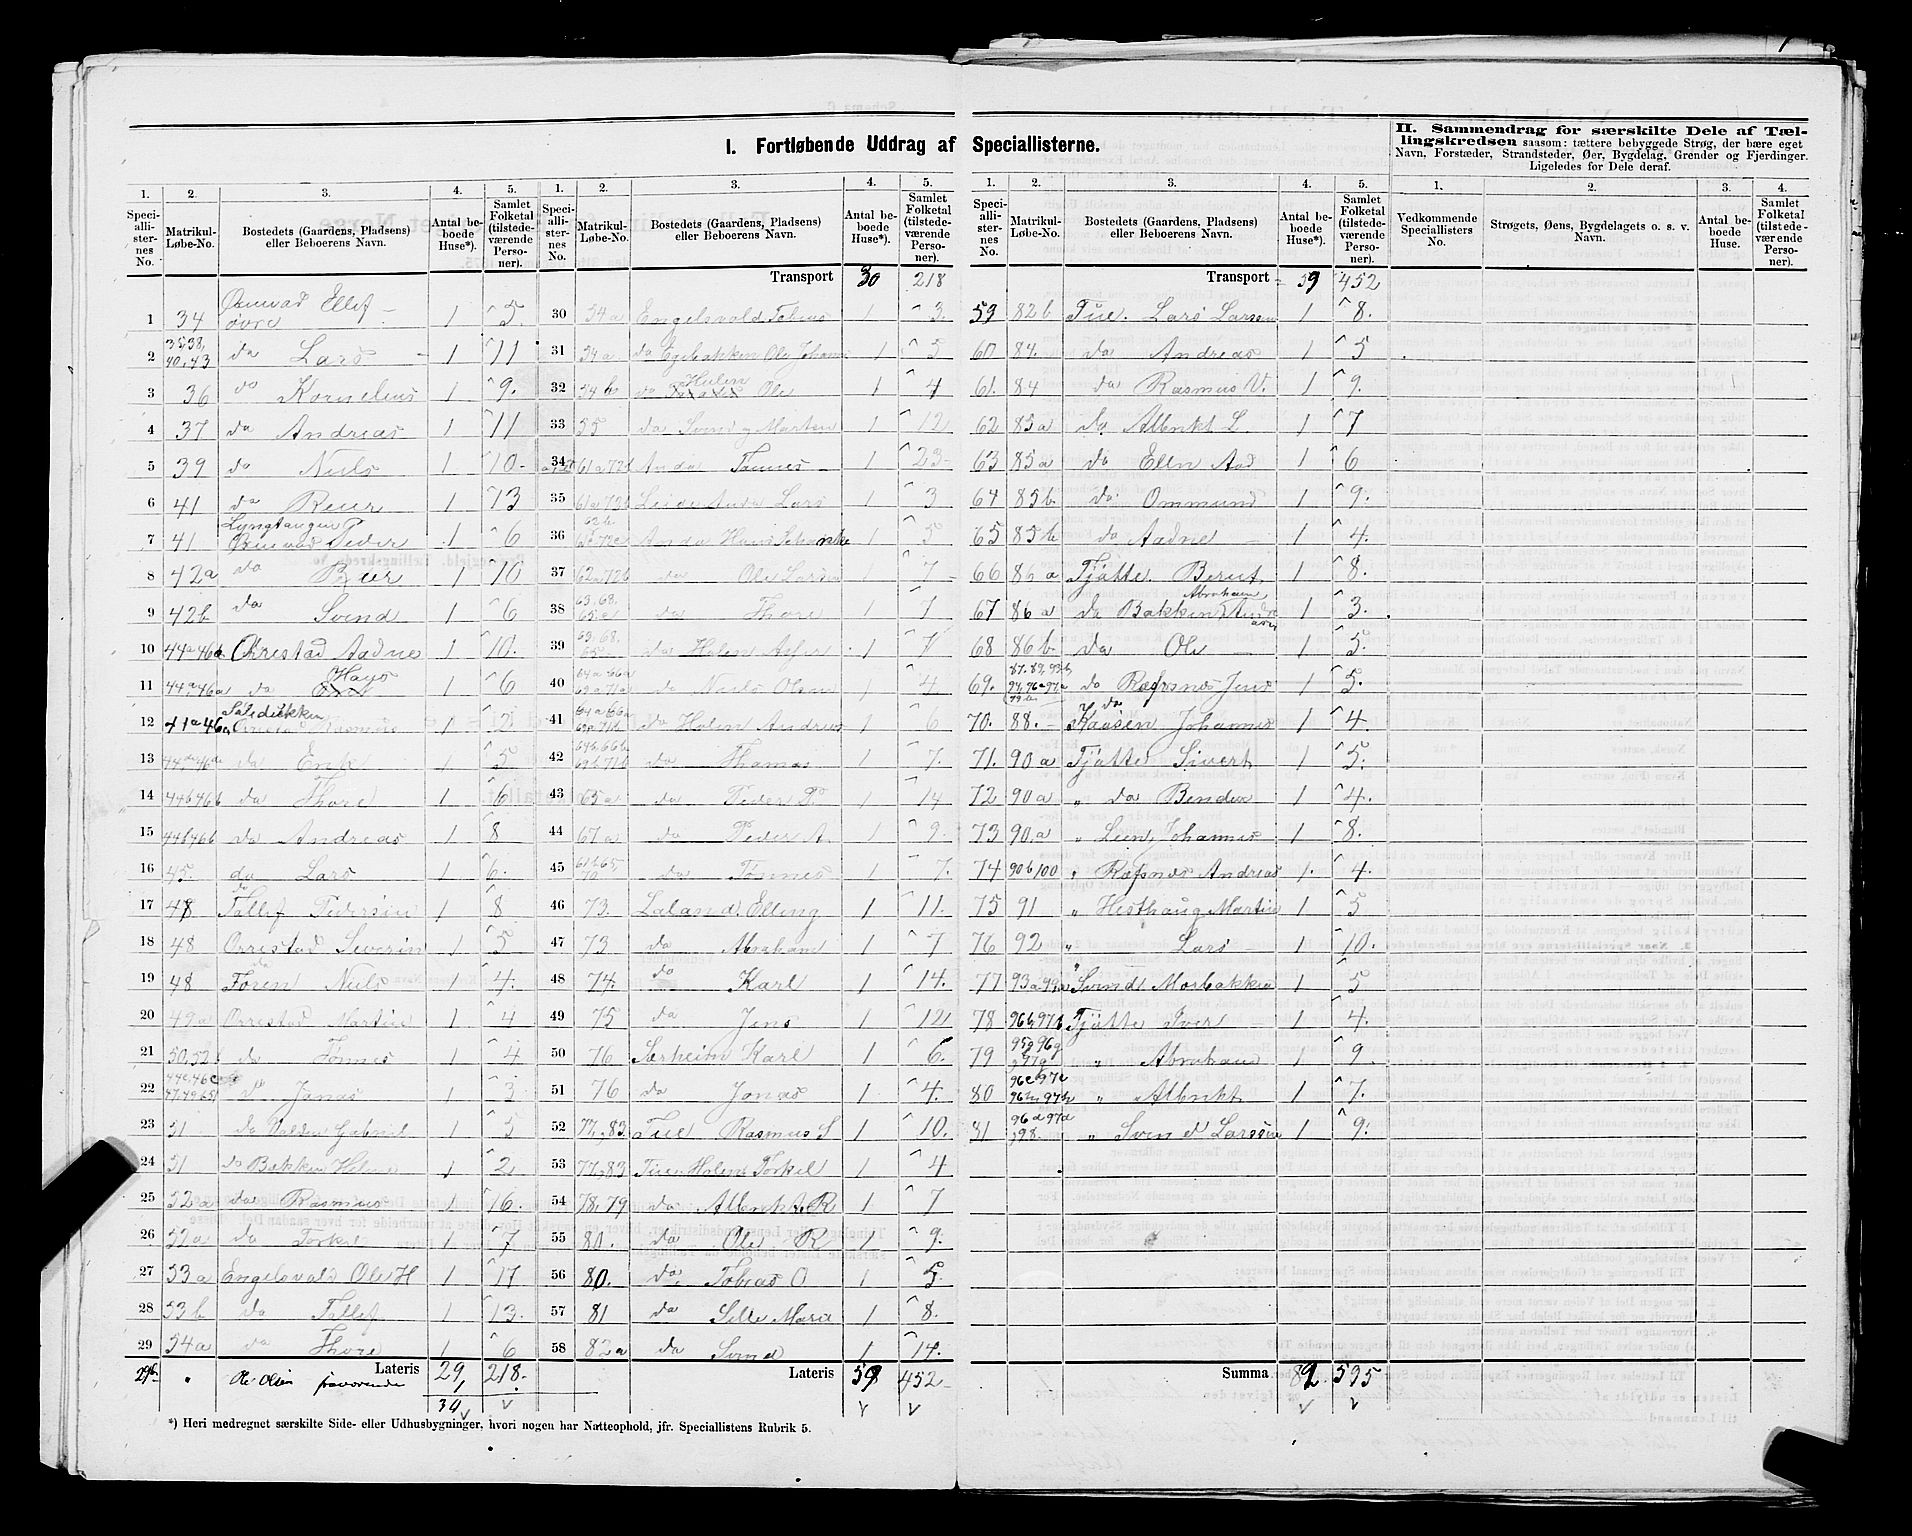 I. Fortløbende Uddrag af Speciallisterne.
II. Sammendrag for særskilte Dele af Tællingskredsen saasom: tættere bebyggede Strøg, der bære eget
Navn, Forstæder, Strandsteder, Øer, Bygdelag, Grender og Fjerdinger.
Ligeledes for Dele deraf.
1. 2. 3. 4. 5. 1. 2. 3. 4. 5.
Speciallisternes No. Matrikul-Løbe-No. Bostedets (Gaardens, Pladsens) eller Beboerens Navn. Antal beboede Huse*). Samlet Folketal (tilstedeværende Personer).
Transport 30 218
1 34 Ellef øvre 1 5.
2 35, 38, 40, 43 do Lars 1 11
3 36 do Kornelius 1 9.
4 37 do Andreas 1 11
5 39 do Nils 1 10
6 41 do Reier 1 13
7 41 Lyngtangen Peder 1 6
8 42a do Reier 1 10
9 42b do Svend 1 6
10 44a 46a Orrestad Aadne 1 10.
11 44a 46a do Hans 1 6
12 44a 46a Rasmus 1 2
13 44a 46a do Erik 1 5
14 44b 46b do Thore 1 6
15 44b 46b do Andreas 1 8
16 45. do Lars 1 6.
17 48 Tollef Pedersen 1 8
18 48 Orrestad Severin 1 5
19 48 Foren Nils 1 4.
20 49a Orrestad Martin 1 4
21 50, 52 do Tønnes 1 4
22 do Jonas 1 3
23 51 do Gabriel 1 5
24 51 do Bakken 1 2
25 52a do Rasmus 1 16.
26 52a do Torkel 1 7
27 53a Engelsvold Ole H 1 17
28 53b do Tollef 1 13.
29 54a do Thore 1 6
Lateris 29, 218.
29b " Ole Olsen fraværende
30
30 54a Engelsvold Tobias 1 3.
31 54a do Ole Johan 1 5
32 54b do Hulen Ole 1 4
33 55 do Svend og Marten 1 12
34 61a 72b Anda Tønnes 1 23
35 61a 72b Anda Lars 1 3
36 Anda Hans Schanke 1 5
37 62a 72b do Ole Larsen 1 7
38 63, 68. do Thore 1 7
39 63, 68. do Holen 1 7
40 64a 66a do Nils Olsen 1 4
41 64a 66a do Holen Andreas 1 6
42 64b, 66b do Thomas 1 7.
43 65a do Peder 1 14
44 67a do Peder A. 1 9.
45 do Tønnes 1 7.
46 73. Laland Elling 1 11.
47 73 do Abraham 1 7
48 74. do Karl 1 14.
49 75 do Jens 1 12
50 76 Særheim Karl 1 6.
51 76 do Jonas 1 4.
52 77, 83. Tue Rasmus S 1 10.
53 77, 83 Tue Holen Torkel 1 4
54 78, 79 do Albrikt R 1 7
55 80. do Ole R 1 9.
56 80. do Tobias O 1 5
57 81 do Sille Marie 1 8.
58 82a do Svend 1 14.
Lateris 59 452
Transport 59 452
59 82b Tue. Lars Larsen 1 8.
60 84. do Andreas 1 5
61. 84 do Rasmus V. 1 9.
62 85a do Albrikt L 1 7
63 85a do Ellen Aad 1 6
64 85b. do Ommund 1 9.
65 85b do Aadne 1 4.
66 86a Tjøtte. Bernt 1 8.
67 86a do Bakken Abraham Andreasen 1 3.
68 86b. do Ole 1 5.
69. do Ræfsnes Jens 1 5.
70. 88. do Kaasen Johannes 1 4.
71. 90a Tjøtte Sivert 1 5.
72 90a " do 1 4.
73 90.a " Leen, Johannes 1 8.
74 90b 100 " Ræfsnes Andreas 1. 4.
75 91 " Hesthaug Martin 1 5
76 92 " Lars 1 10.
77 93a 99a " Svend Mosbakken 1 5
78 96b, 97b Tjøtte Iver 1 4.
79 95g 96g, 97g. " Abraham 1 9
80 96c 97c " Albrikt 1 7.
81 96d 97d, 98. " Svend Larsen 1 9.
Summa 82. 595
1. 2. 3. 4.
Vedkommende Speciallisters No. Strøgets, Øens, Bygdelagets o. s. v. Navn. Antal beboede Huse. Samlet Folketal (tilstedeværende Personer).
*) Heri medregnet særskilte Side- eller Udhusbygninger, hvori nogen har Natteophold, jfr. Speciallistens Rubrik 5.